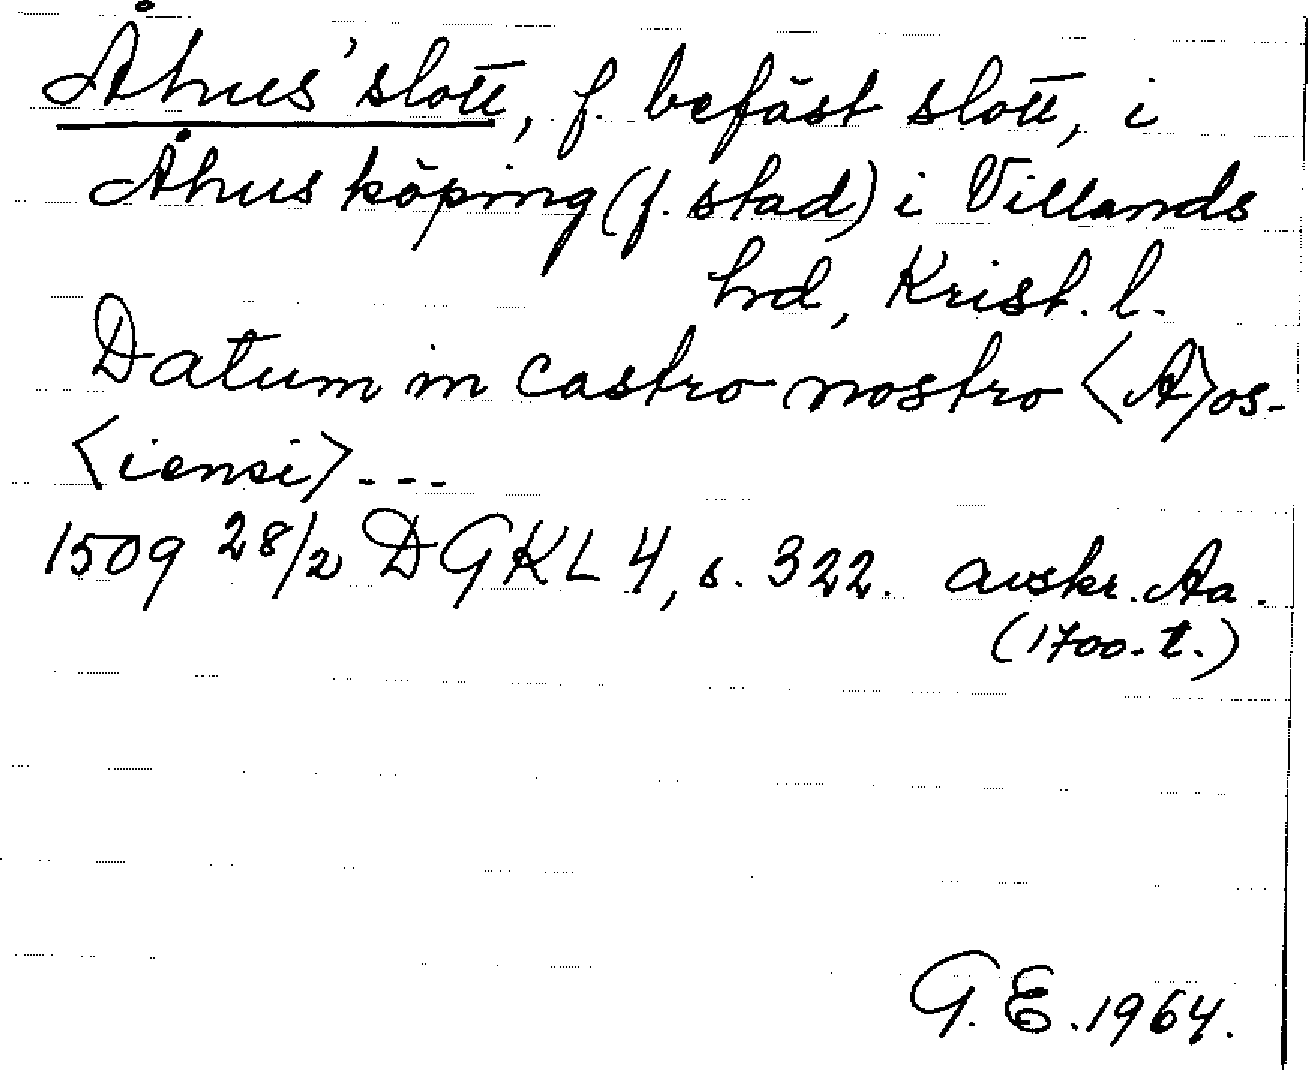 Åhus' slott, f. befäst slott, i
Åhus köping (f. stad) i Villands
hrd, Krist. l.
Datum in castro nostro <A>os-
<iensi> - - -
1509 28/2 DGKL 4, s. 322. avskr. Aa.
(1700-t.)
G. E. 1964.